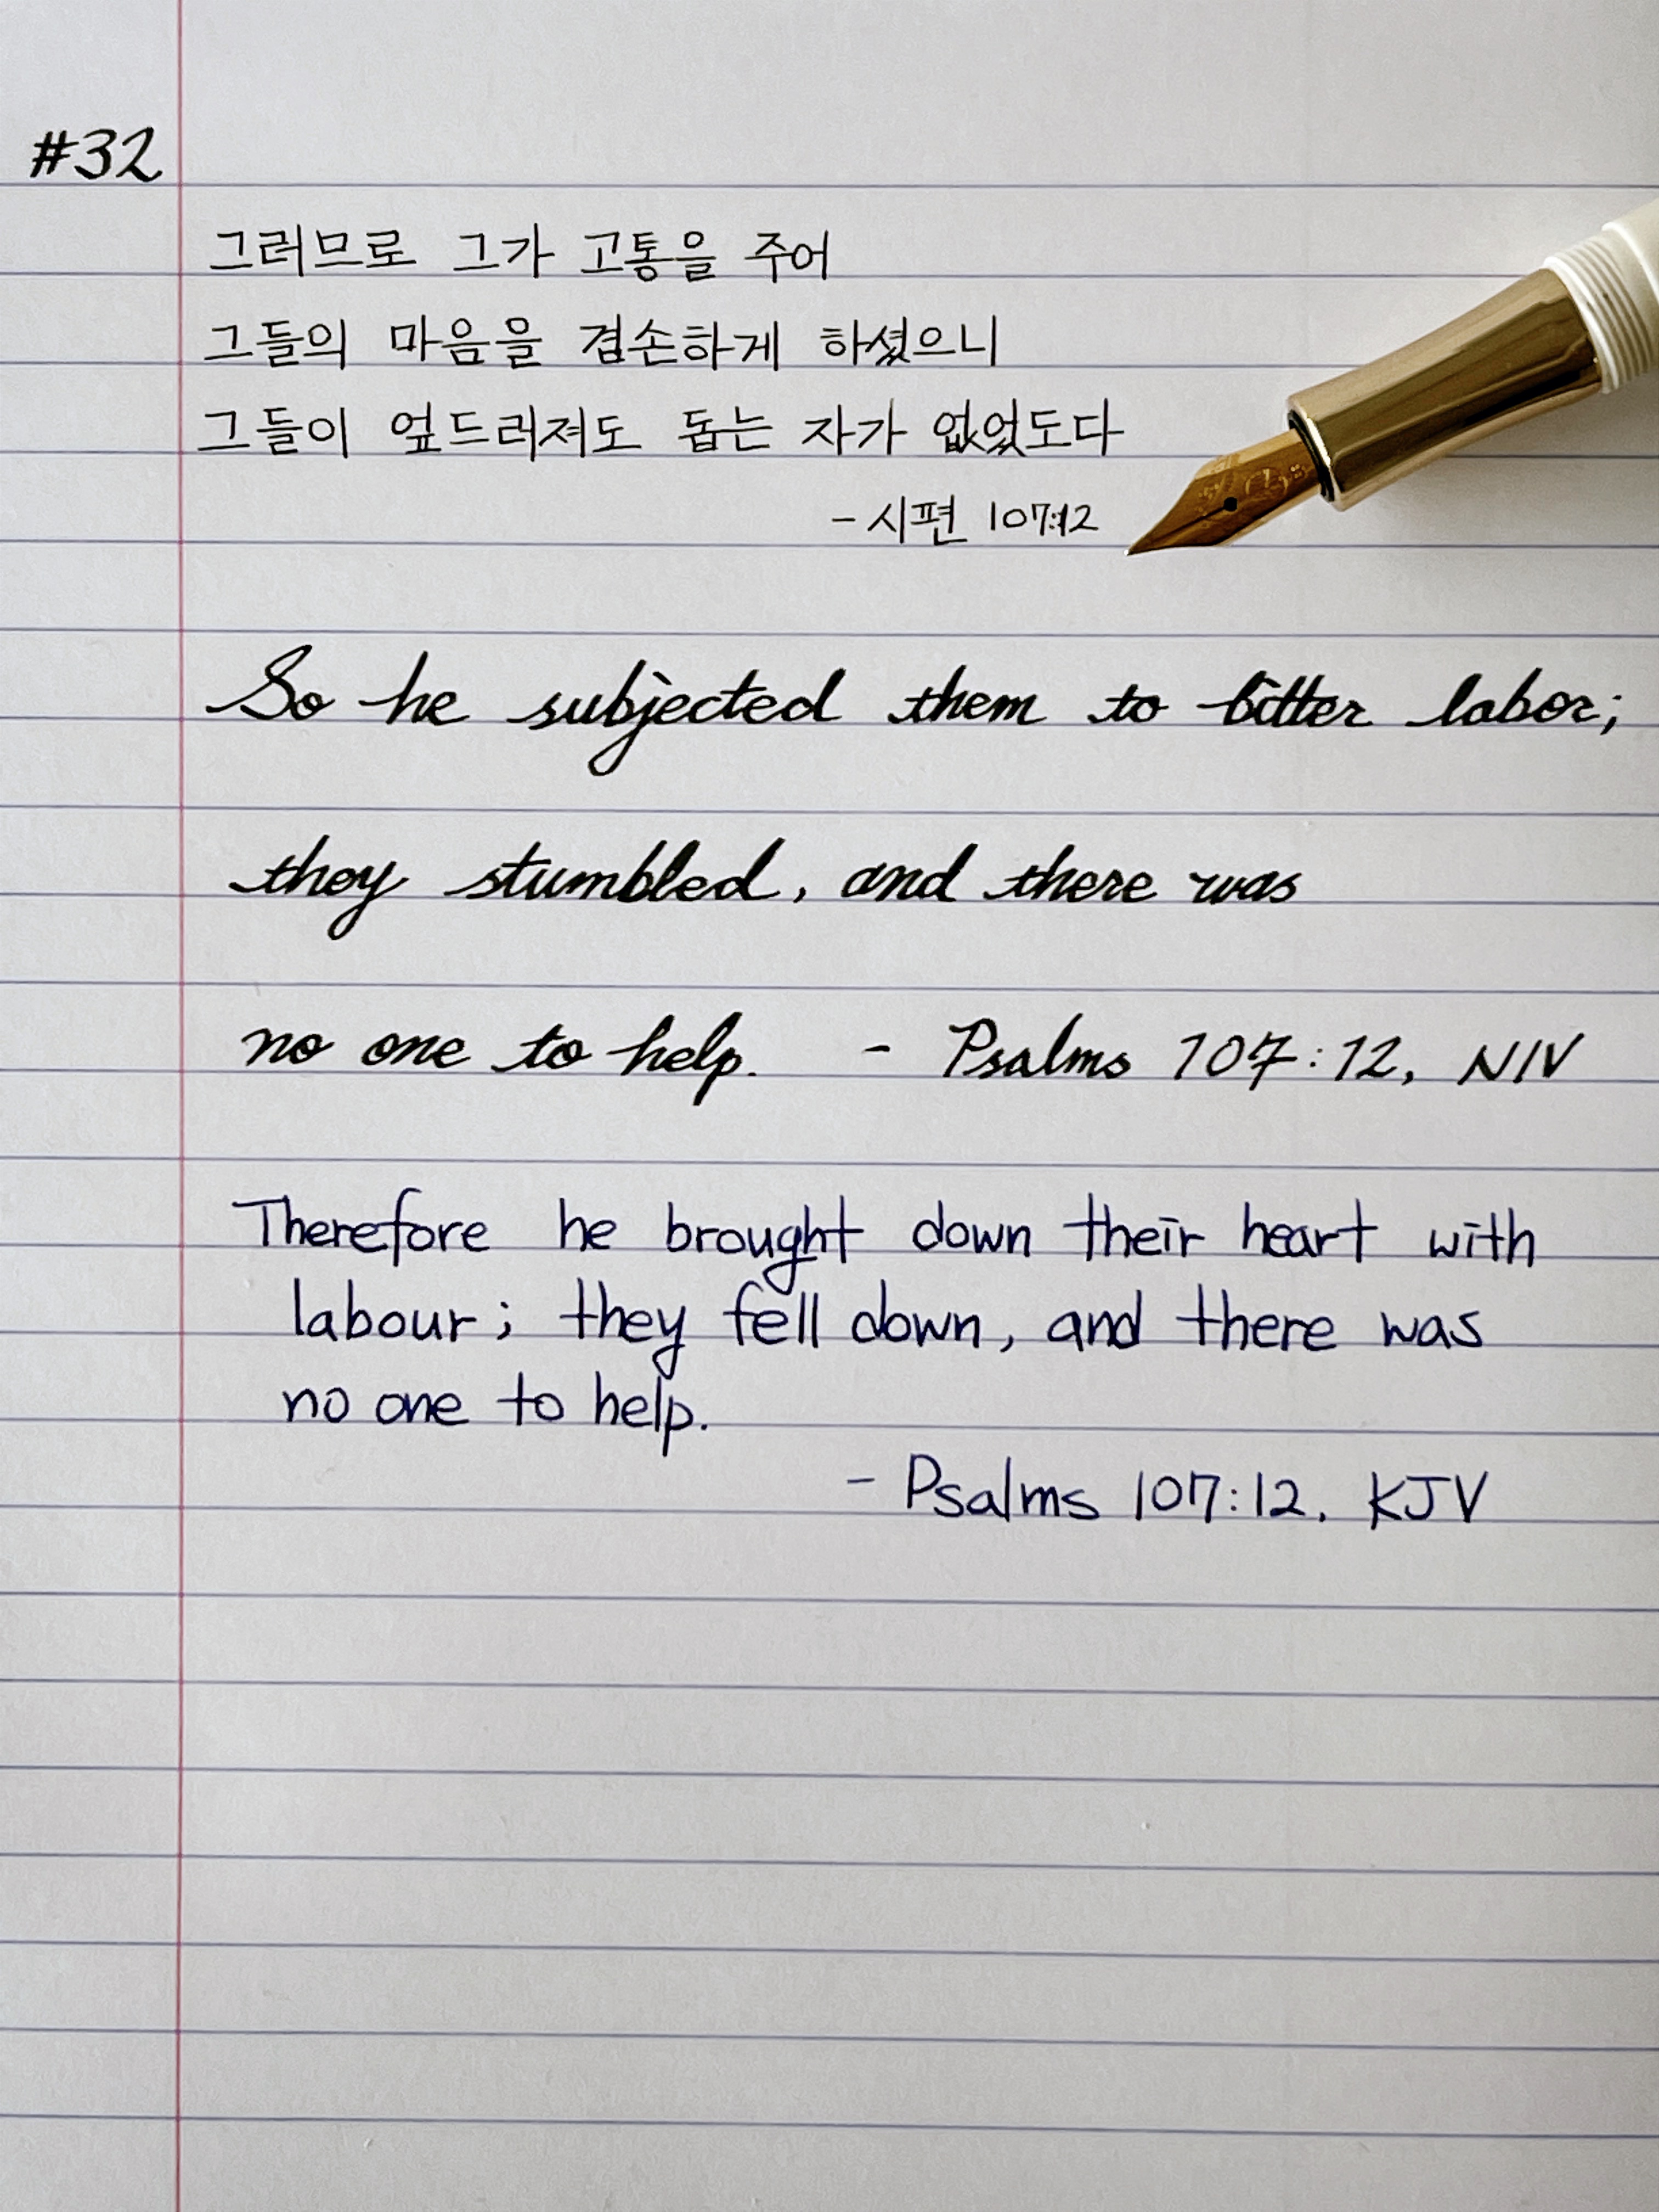 #32
그러므로 그가 고통을 주어
그들의 마음을 겸손하게 하셨으니
그들이 엎드러져도 돕는 자가 없었도다
- 시편 107:12
So he subjected them to bitter labor;
they stumbled, and there was
no one to help. - Psalms 107:12, NIV
Therefore he brought down their heart with
labour; they fell down, and there was
no one to help.
- Psalms 107:12. KJV